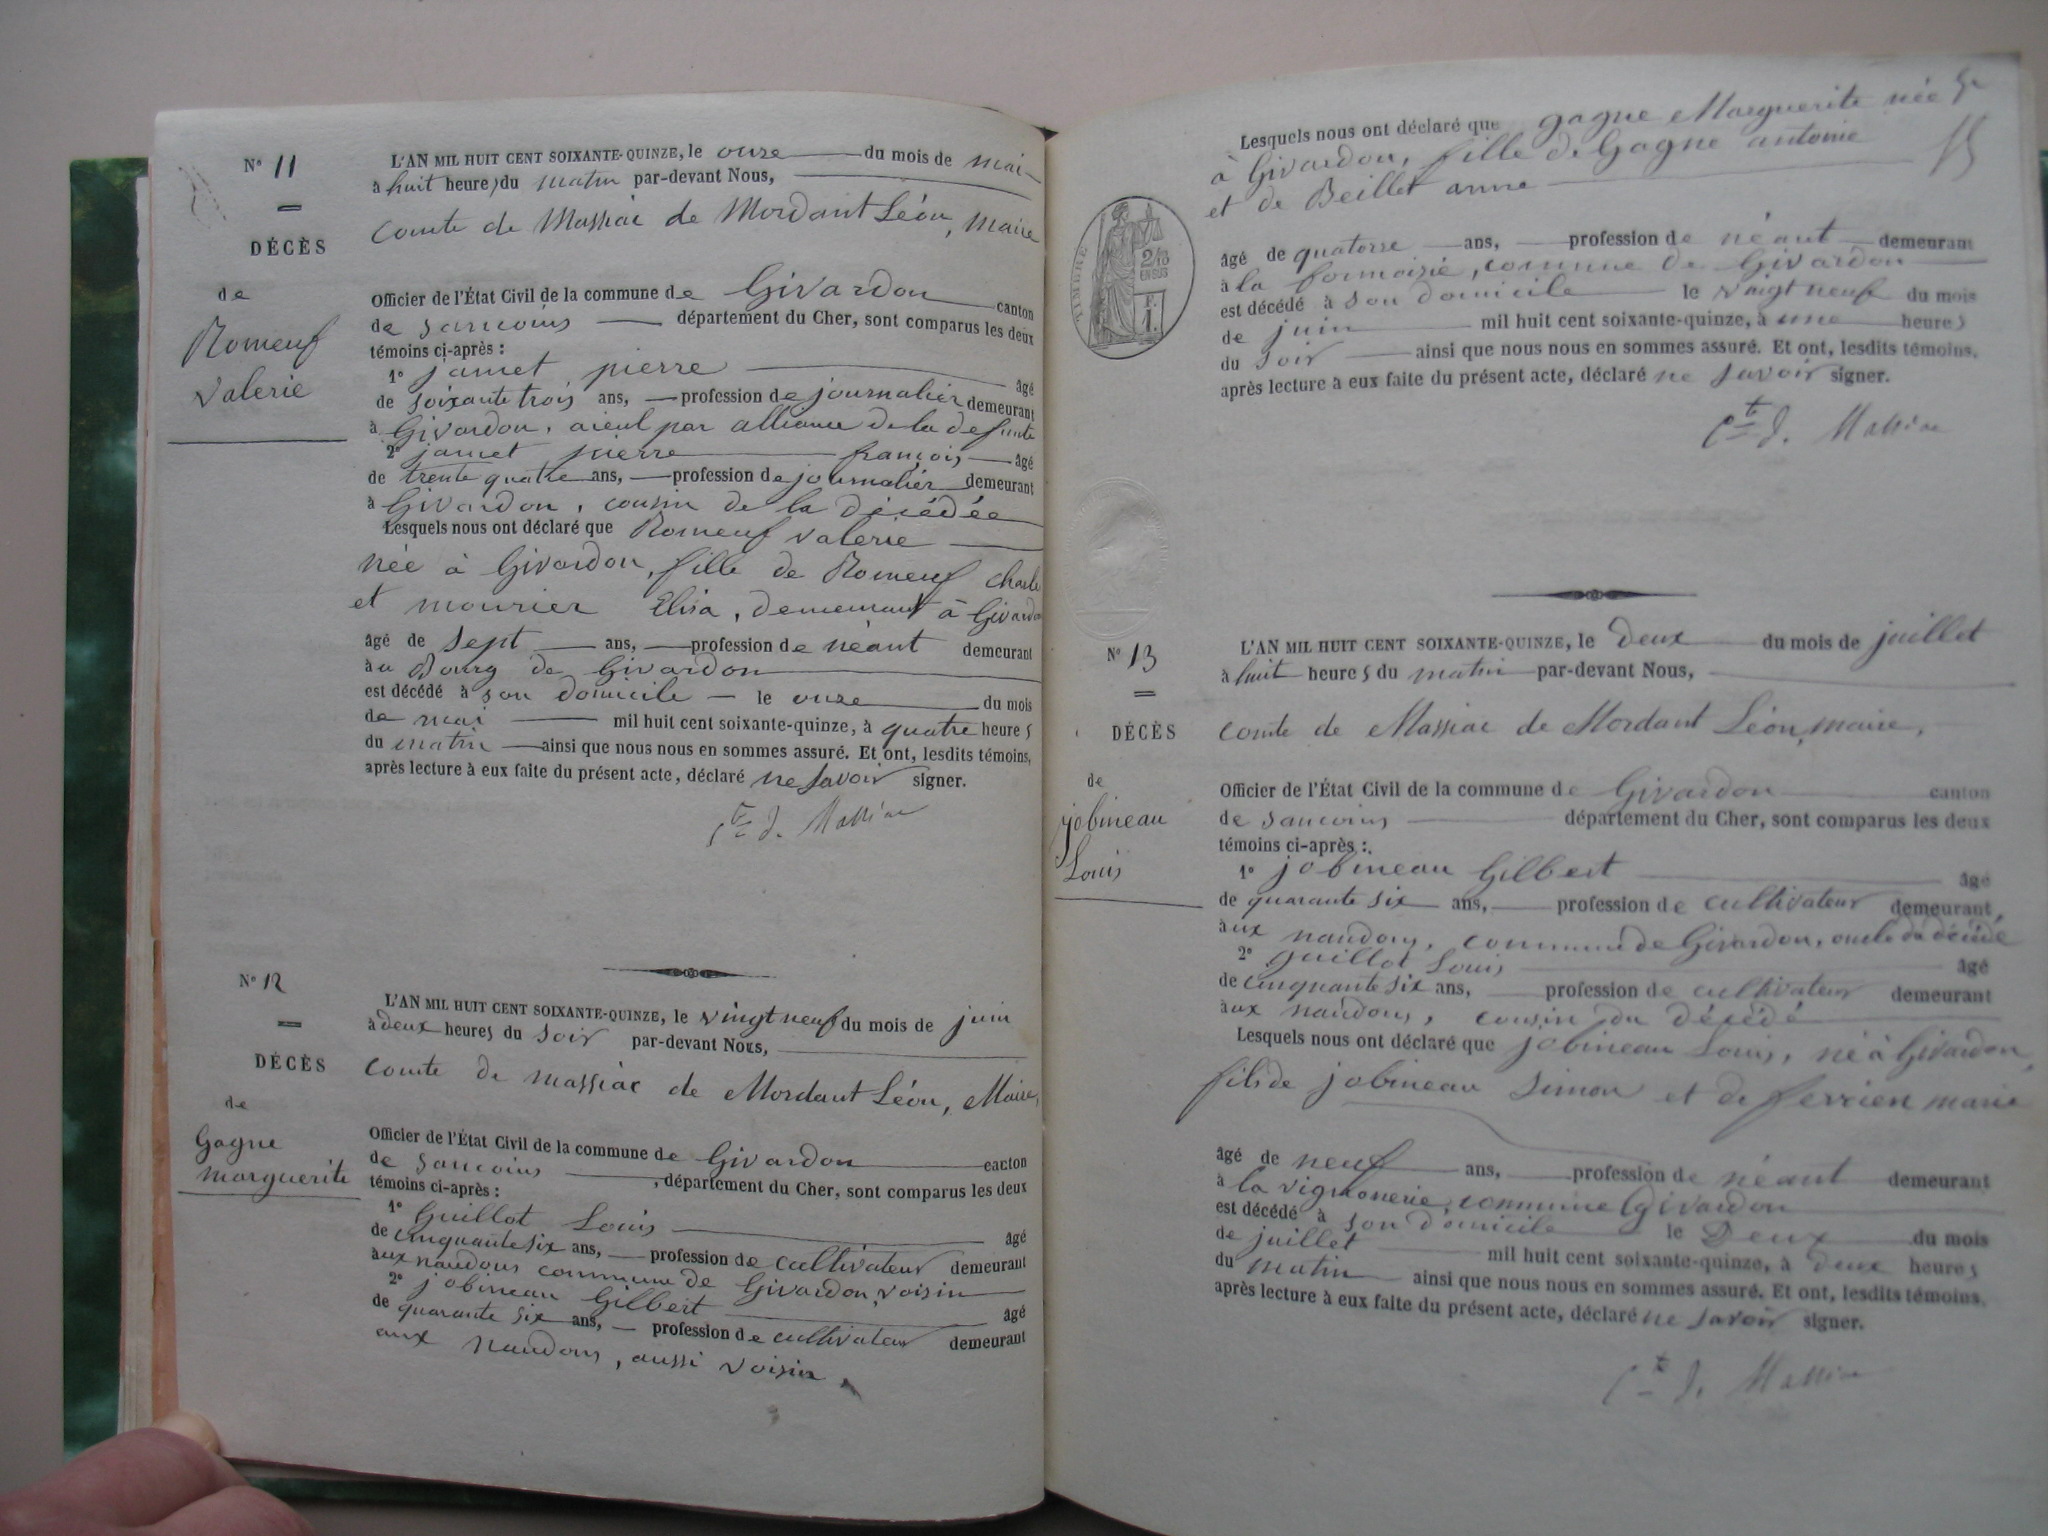 N° 11
DÉCÈS
de
Romeuf
Valerie
L'AN MIL HUIT CENT SOIXANTE-QUINZE, le onze du mois de mai
à huit heures du matin par-devant Nous,
Comte de Massiac de Mordant Léon, Maire
Officier de l'État Civil de la commune de Givardon canton
de sancoins département du Cher, sont comparus les deux
témoins ci-après :
1° jamet pierre âgé
de soixante trois ans, profession de journalier demeurant
à Givardon, aieul par alliance de la défunte
2° jamet pierre françois âgé
de trente quatre ans, profession de journalier demeurant
à Givardon, cousin de la décédée
Lesquels nous ont déclaré que Romeuf valerie
née à Givardon, fille de Romeuf charle
et mourier Elisa, demeurant à Givardon
âgé de sept ans, profession de néant demeurant
à u Bourg de Givardon
est décédé à son domicile le onze du mois
de mai mil huit cent soixante-quinze, à quatre heures
du matin ainsi que nous nous en sommes assuré. Et ont, lesdits témoins,
après lecture à eux faite du présent acte, déclaré ne savoir signer.
Cte d. Massiac
N° 12
DÉCÈS
de
Gagne
marguerite
L'AN MIL HUIT CENT SOIXANTE-QUINZE, le vingt neuf du mois de juin
à deux heures du soir par-devant Nous,
comte de massiac de Mordant Léon, Maire,
Officier de l'État Civil de la commune de Givardon canton
de sancoins, département du Cher, sont comparus les deux
témoins ci-après :
1° Guillot Louis âgé
de cinquante six ans, profession de cultivateur demeurant
à ux naudons commune de Givardon, voisin
2° jobineau Gilbert âgé
de quarante six ans, profession de cultivateur demeurant
aux naudons, aussi voisin
Lesquels nous ont déclaré que gagne Marguerite née
à Givardon, fille de Gagne antoine
et de Beillet anne
TIMBRE
2/10
EN SUS
F.
1.
âgé de quatorse ans, profession de néant demeurant
à la formoisié, commune de Givardon
est décédé à son domicile le vaigt neuf du mois
de juin mil huit cent soixante-quinze, à une heures
du soir ainsi que nous nous en sommes assuré. Et ont, lesdits témoins,
après lecture à eux faite du présent acte, déclaré ne savoir signer.
Cte d. Massiac
N° 13
DÉCÈS
de
jobineau
Louis
L'AN MIL HUIT CENT SOIXANTE-QUINZE, le deux du mois de juillet
à huit heures du matin par-devant Nous,
comte de Massiac de Mordant Léon, maire,
Officier de l'État Civil de la commune de Givardon canton
de sancoins département du Cher, sont comparus les deux
témoins ci-après :
1° jobineau Gilbert âgé
de quarante six ans, profession de cultivateur demeurant
à ux naudons, commune de Givardon, oncle du décédé
2° guillot Louis âgé
de cinquante six ans, profession de cultivateur demeurant
à ux naudons, cousin du décédé
Lesquels nous ont déclaré que jobineau Louis, né à Givardon,
fils de jobineau Simon et de ferrien marie
âgé de neuf ans, profession de néant demeurant
à la vignonerie, commune Givardon
est décédé à son domicile le Deux du mois
de juillet mil huit cent soixante-quinze, à deux heures
du matin ainsi que nous nous en sommes assuré. Et ont, lesdits témoins,
après lecture à eux faite du présent acte, déclaré ne savoir signer.
Cte d. Massiac